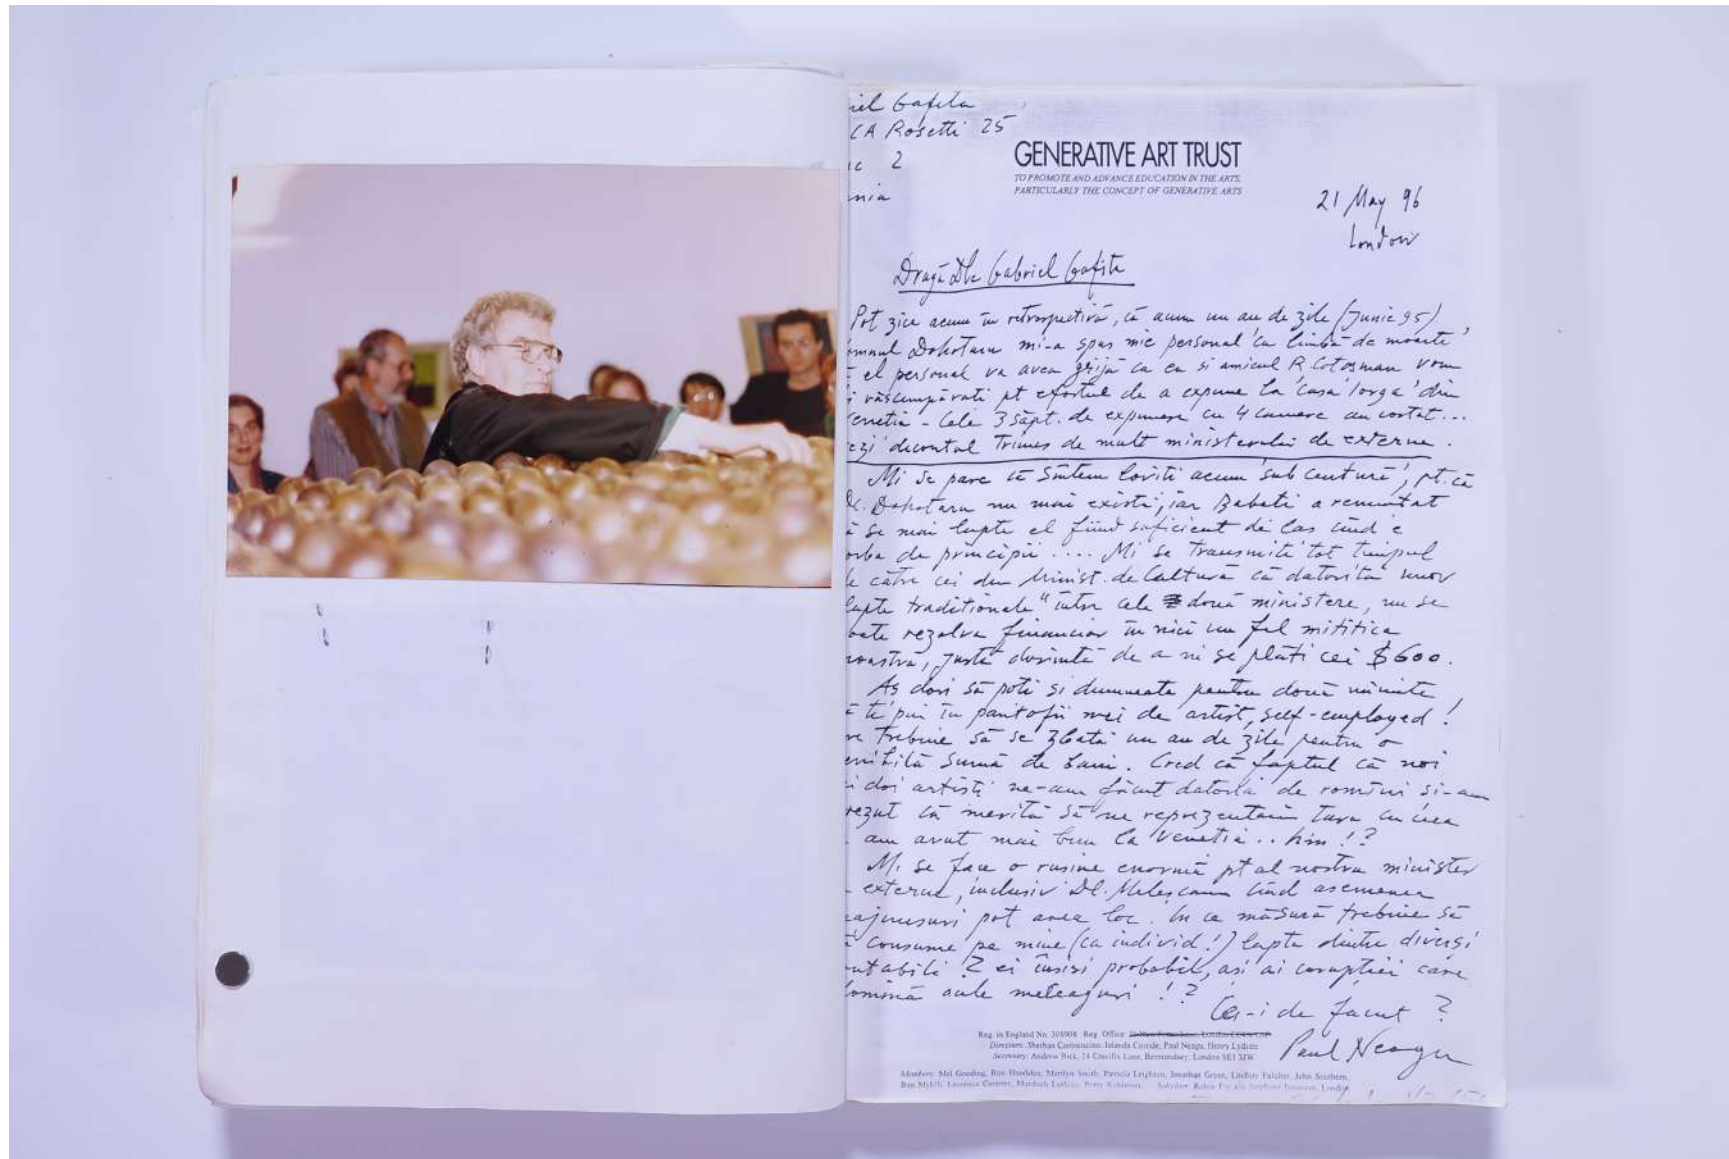 iel Gafita
CA Rosetti 25
c 2
nia
GENERATIVE ART TRUST
TO PROMOTE AND ADVANCE EDUCATION IN THE ARTS,
PARTICULARLY THE CONCEPT OF GENERATIVE ARTS
21 May 96
London
Dragă Dle Gabriel Gafita
Pot zice acum în retrospectivă, că acum un an de zile (Junie 95),
mnul Dohotaru mi-a spus mie personal 'ca limbă de moarte'
el personal va avea grijă ca eu si amicul R. Cotosman vom
i răscumpărati pt efortul de a expune la 'Casa Iorga' din
enetia - Cele 3 săpt. de expunere cu 4 camere au costat...
ezi decontul trimes de mult ministerului de externe.
Mi se pare că sîntem loviti acum 'sub centură', pt. că
Dr. Dohotaru nu mai există, iar Babeti a renuntat
ă se mai lupte el fiind suficient de las cînd e
orba de principii .... Mi se transmite tot timpul
e către cei din Minist. de Cultură că datorită unor
lupte traditionale" între cele două ministere, nu se
oate rezolva financiar în nici un fel mititica
noastră, justă dorintă de a ni se plăti cei $600.
Aș dori să poti si dumneata pentru două minute
ă te pui în pantofii mei de artist, self-employed!
re trebuie să se zbată un an de zile pentru o
enibilă sumă de bani. Cred că faptul că noi
i doi artiști ne-am făcut datoria de romîni si-am
rezut că merită să ne reprezentăm tara cu ceea
am avut mai bun la Venetia .. hm!?
Mi se face o rusine enormă pt al nostru minister
externe, inclusiv Dl. Meleșcanu cînd asemenea
ajunsuri pot avea loc. In ce măsură trebuie să
ă consume pe mine (ca individ!) lupta dintre diverși
ntabili? ei însisi probabil, asi ai coruptiei care
domină acele meleaguri !?
Ce-i de facut ?
Paul Neagu
Reg. in England No. 308908 Reg. Office:
Directors: Sherban Cantacuzino, Iolanda Costide, Paul Neagu, Henry Lydiate
Secretary: Andrew Bick, 24 Crucifix Lane, Bermondsey, London SE1 3JW
Members: Mel Gooding, Ron Haselden, Marilyn Smith, Patricia Leighton, Jonathan Green, Lindsey Fulcher, John Southern,